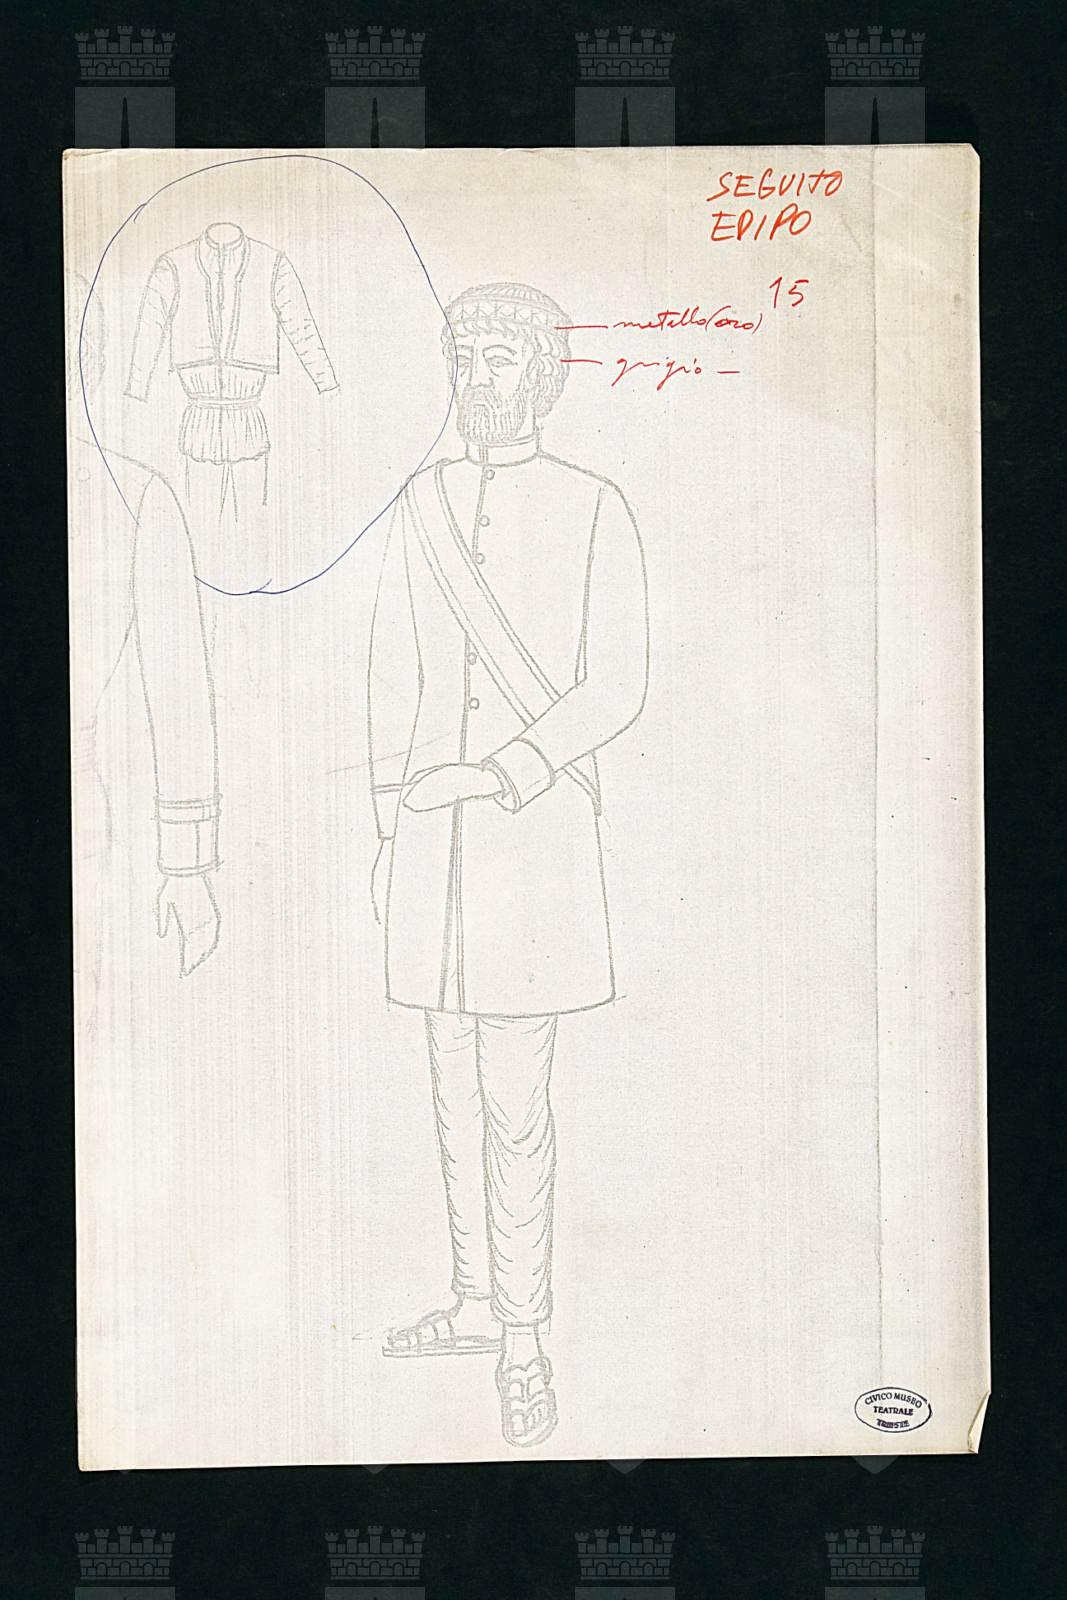 SEGUITO
EDIPO
15
metallo (oro)
grigio —
CIVICO MUSEO
TEATRALE
TRIESTE